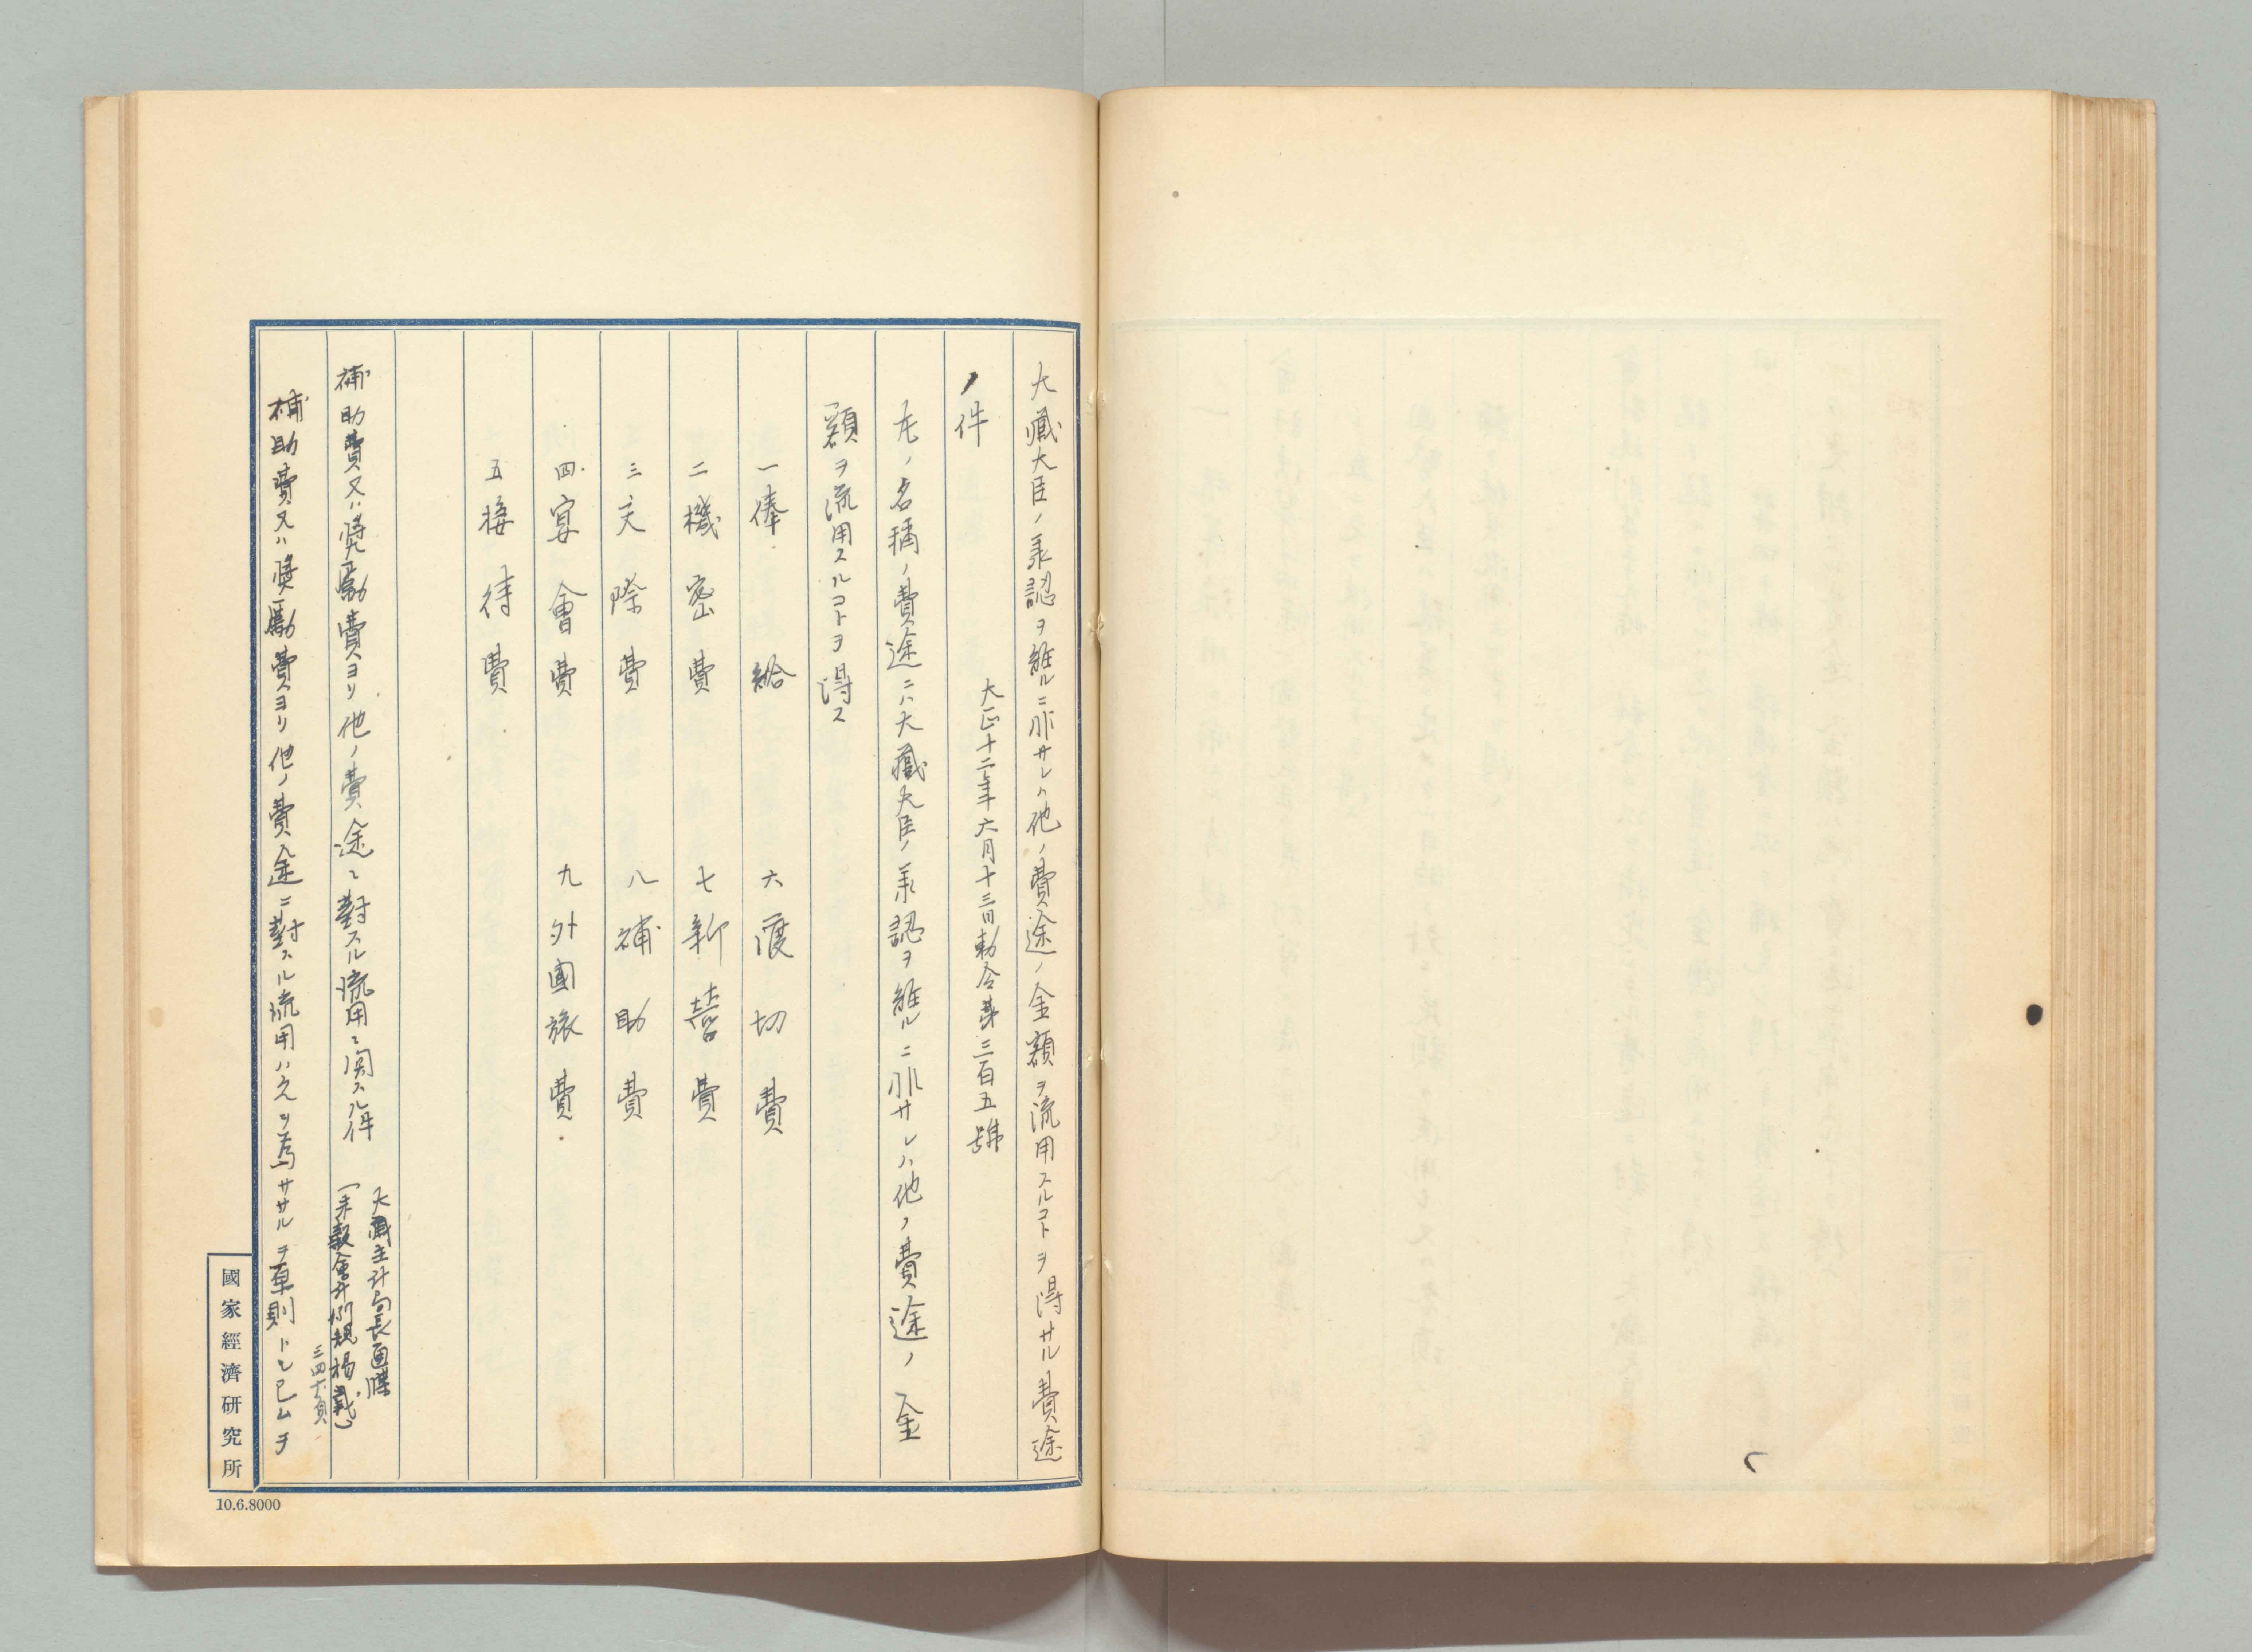 大藏大臣ノ承認ヲ經ルニ非サレハ他ノ費途ノ金額ヲ流用スルコトヲ得サル費途
ノ件
大正十二年六月十三日勅令第三百五號
左ノ名稱ノ費途ニハ大藏大臣ノ承認ヲ經ルニ非サレハ他ノ費途ノ金
額ヲ流用スルコトヲ得ス
一俸給 六渡切費
二機密費 七新營費
三交際費 八補助費
四宴會費 九外國旅費
五接待費
補助費又ハ奬勵費ヨリ他ノ費途ニ對スル流用ニ関スル件
大藏主計局長通牒
(未報會計例規揭載)
三四六頁
補助費又ハ奬勵費ヨリ他ノ費途ニ對スル流用ハ之ヲ爲ササルヲ原則トシ已ムヲ
國家經濟研究所
10.6.8000